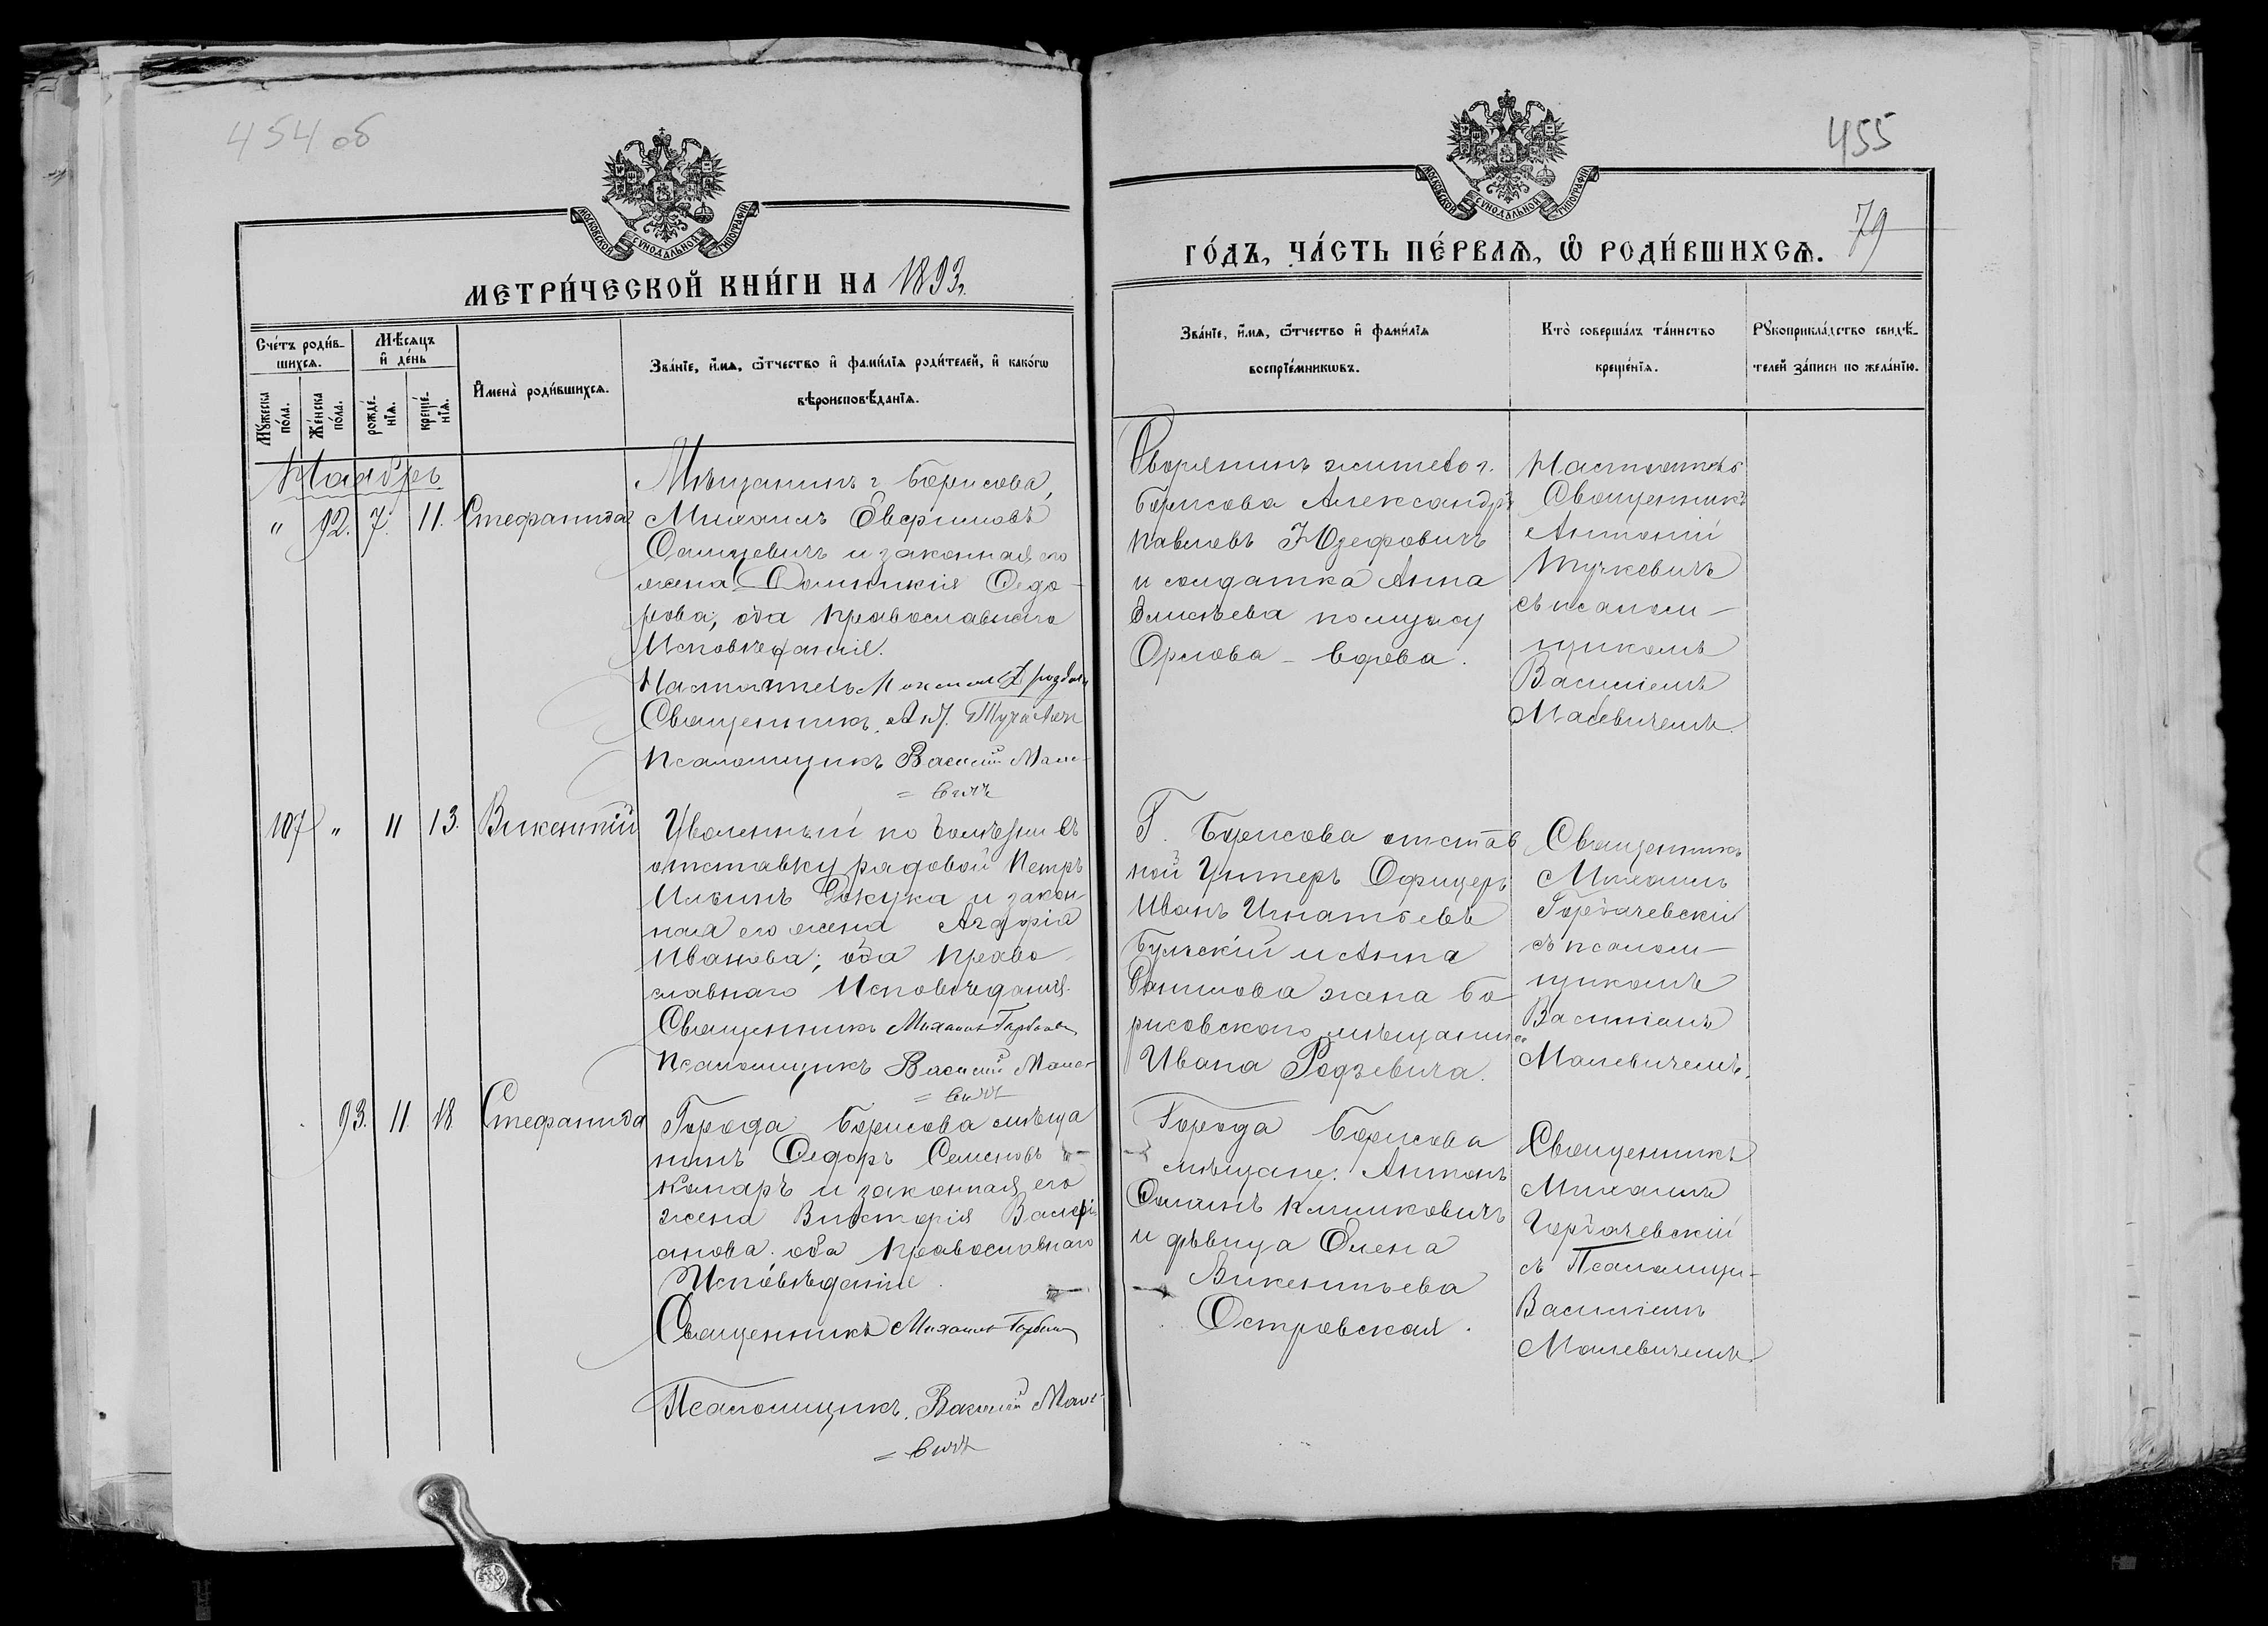 454 об
МОСКОВСКОЙ СѴНОДАЛЬНОЙ ТИПОГРАФІИ
МЕТРИ́ЧЕСКОЙ КНИ́ГИ НА 1893 г.
Сче́тъ роди́в-
шихся.
Мѣ́сяцъ
и҆ де́нь
Мꙋ́жеска
по́ла.
Же́нска
по́ла.
рожде́-
нїя.
креще́-
нїя.
И҆мена̀ роди́вшихся.
Зва́нїе, и҆́мя, ѻ҆́тчество и҆ фами́лїя роди́телей, и҆ како́гѡ
вѣроисповѣ́данїя.
Ноябрь
" 92. 7. 11. Стефанида
Мѣщанинъ г. Борисова,
Михаилъ Евфимовъ
и законная его
жена Домникія Ѳедо-
рова; оба православнаго
Исповѣданія.
Настоятель
Священникъ Ант. Тучкевич
Псаломщикъ Василій Мале-
= вичъ
107 " 11 13. Викентій
Уволенный по болѣзни въ
отставку рядовой Петръ
Ильинъ и закон-
ная его жена
Иванова; оба право-
славнаго Исповѣданія.
Священникъ Михаилъ
Псаломщикъ Василій Мале-
= вичъ
93. 11. 18 Стефанида
Города Борисова мѣща
нинъ Ѳедоръ Семеновъ
Комаръ и законная его
жена Викторія Валері-
анова. оба православнаго
Исповѣданія.
Священникъ Михаилъ
Псаломщикъ. Василій Мале-
= вичъ
455
МОСКОВСКОЙ СѴНОДАЛЬНОЙ ТИПОГРАФІИ
ГО́ДЪ, ЧА́СТЬ ПЕ́РВАЯ, Ѡ҆ РОДИ́ВШИХСЯ.
79
Зва́нїе, и҆́мя, ѻ҆́тчество и҆ фами́лїя
воспрїе́мникѡвъ.
Кто̀ соверша́лъ та́инство
креще́нїя.
Рꙋкоприкла́дство свидѣ́-
телей за́писи по жела́нїю.
Дворянинъ житель г.
Борисова Александръ
Павловъ Юзефовичъ
и солдатка Анна
Елисѣева по мужу
Орлова - вдова.
Настоятель
Священникъ
Антоній
Тучкевичъ
съ псалом-
щикомъ
Василіемъ
Малевичемъ.
Г. Борисова отстав
ной Унтеръ Офицеръ
Иванъ Игнатьевъ
Бульскій и Анна
Данилова жена Бо
рисовскаго мѣщанина
Ивана Родзевича.
Священникъ
Михаилъ
Горбачевскій
съ псалом-
щикомъ
Василіемъ
Малевичемъ.
Города Борисова
мѣщане: Антонъ
Климковичъ
и дѣвица Елена
Викентьева
Островская.
Священникъ
Михаилъ
Горбачевскій
съ Псаломщи-
Василіемъ
Малевичемъ